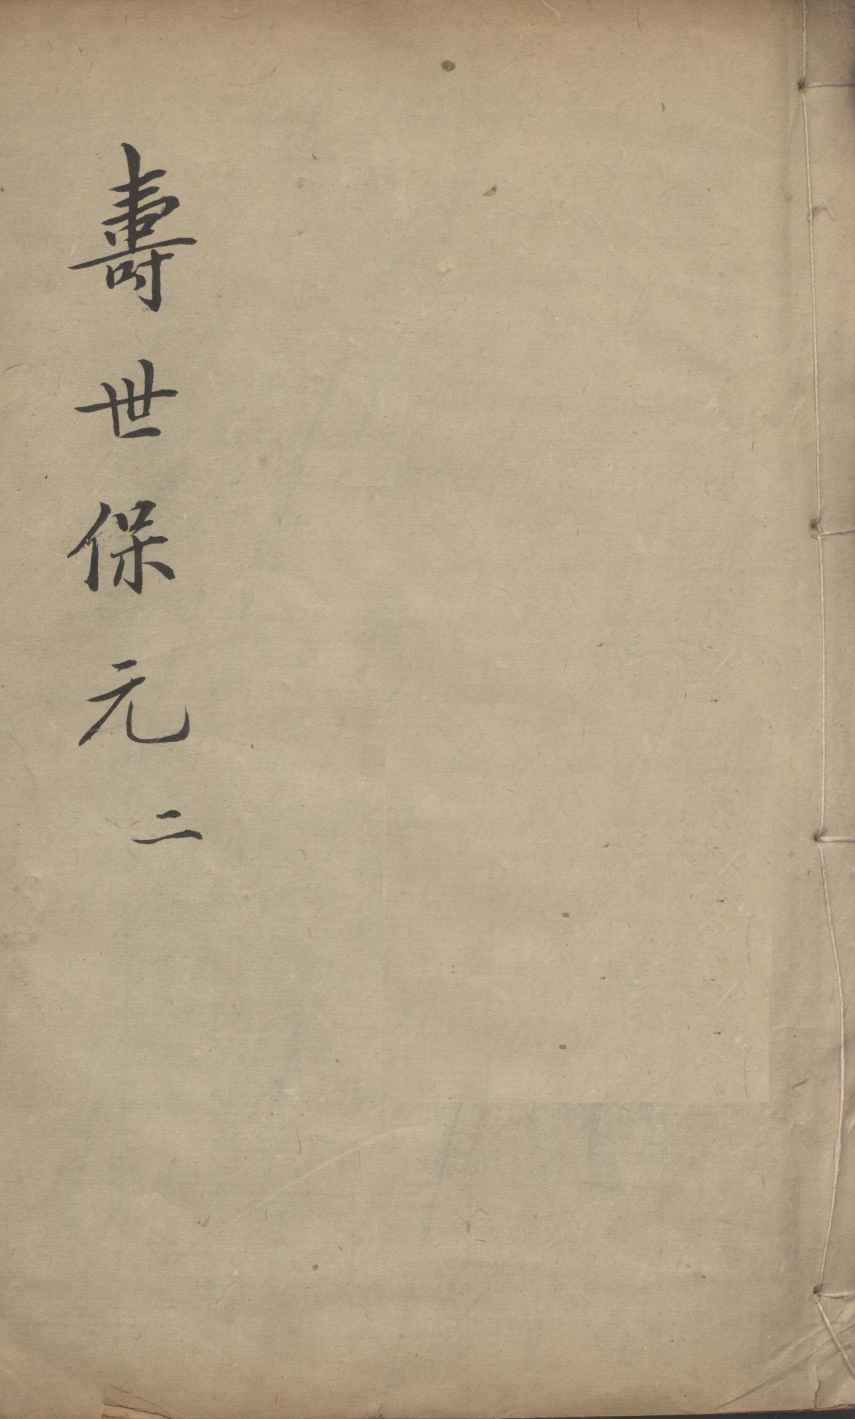 壽世保元 二